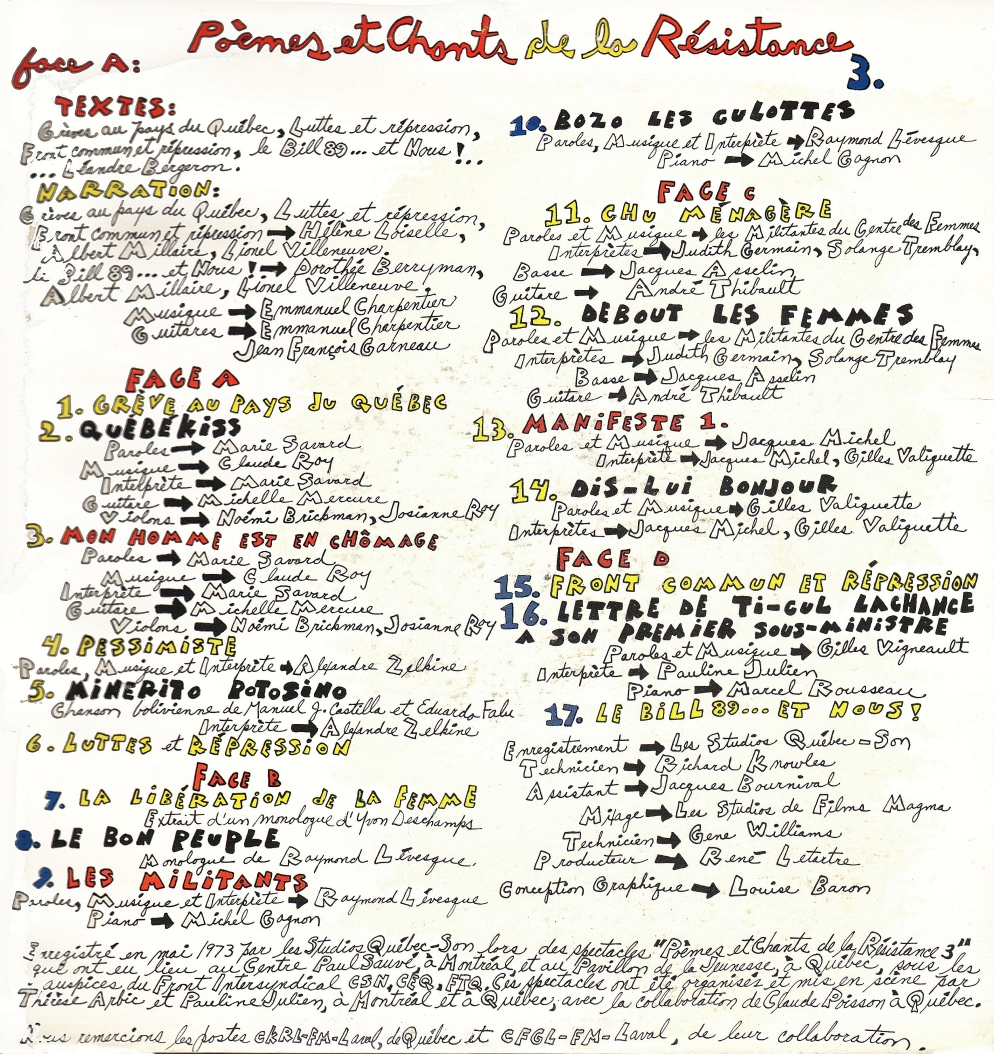 Poèmes et Chants de la Résistance
3.
face A:
TEXTES:
Grèves au pays du Québec, Luttes et répression,
Front commun et répression, le Bill 89... et Nous !...
... Léandre Bergeron.
NARRATION:
Grèves au pays du Québec, Luttes et répression,
Front commun et répression → Hélène Loiselle,
Albert Millaire, Lionel Villeneuve.
le Bill 89... et Nous ! → Dorothée Berryman,
Albert Millaire, Lionel Villeneuve.
Musique → Emmanuel Charpentier
Guitares → Emmanuel Charpentier
Jean François Garneau
FACE A
1. GRÈVE AU PAYS DU QUÉBEC
2. QUÉBÉKISS
Paroles → Marie Savard
Musique → Claude Roy
Interprète → Marie Savard
Guitare → Michelle Mercure
Violons → Noëmi Brickman, Josianne Roy
3. MON HOMME EST EN CHÔMAGE
Paroles → Marie Savard
Musique → Claude Roy
Interprète → Marie Savard
Guitare → Michelle Mercure
Violons → Noëmi Brickman, Josianne Roy
4. PESSIMISTE
Paroles, Musique et Interprète → Alejandre Zelkine
5. MINERITO POTOSINO
Chanson bolivienne de Manuel J. Castilla et Eduardo Falu
Interprète → Alejandre Zelkine
6. LUTTES et RÉPRESSION
FACE B
7. LA LIBÉRATION DE LA FEMME
Extrait d'un monologue d'Yvon Deschamps
8. LE BON PEUPLE
Monologue de Raymond Lévesque.
9. LES MILITANTS
Paroles, Musique et Interprète → Raymond Lévesque
Piano → Michel Gagnon
10. BOZO LES CULOTTES
Paroles, Musique et Interprète → Raymond Lévesque
Piano → Michel Gagnon
FACE C
11. CHU MÉNAGÈRE
Paroles et Musique → les Militantes du Centre des Femmes
Interprètes → Judith Germain, Solange Tremblay,
Basse → Jacques Asselin
Guitare → André Thibault
12. DEBOUT LES FEMMES
Paroles et Musique → les Militantes du Centre des Femmes
Interprètes → Judith Germain, Solange Tremblay
Basse → Jacques Asselin
Guitare → André Thibault
13. MANIFESTE 1.
Paroles et Musique → Jacques Michel
Interprète → Jacques Michel, Gilles Valiquette
14. DIS-LUI BONJOUR
Paroles et Musique → Gilles Valiquette
Interprètes → Jacques Michel, Gilles Valiquette
FACE D
15. FRONT COMMUN ET RÉPRESSION
16. LETTRE DE TI-CUL LACHANCE
A SON PREMIER SOUS-MINISTRE
Paroles et Musique → Gilles Vigneault
Interprète → Pauline Julien
Piano → Marcel Rousseau
17. LE BILL 89... ET NOUS!
Enregistrement → Les Studios Québec-Son
Technicien → Richard Knowles
Assistant → Jacques Bournival
Mixage → Les Studios de Films Magma
Technicien → Gene Williams
Producteur → René Letartre
Conception Graphique → Louise Baron
Enregistré en mai 1973 par les Studios Québec-Son lors des spectacles "Poèmes et Chants de la Résistance 3"
que ont eu lieu au Centre Paul Sauvé, à Montréal et au Pavillon de la Jeunesse, à Québec, sous les
auspices du Front Intersyndical CSN, CEQ, FTQ. Ces spectacles ont été organisés et mis en scène par
Thérèse Arbic et Pauline Julien, à Montréal et à Québec; avec la collaboration de Claude Poisson à Québec.
Nous remercions les postes CKRL-FM-Laval, de Québec et CFGL-FM-Laval, de leur collaboration.